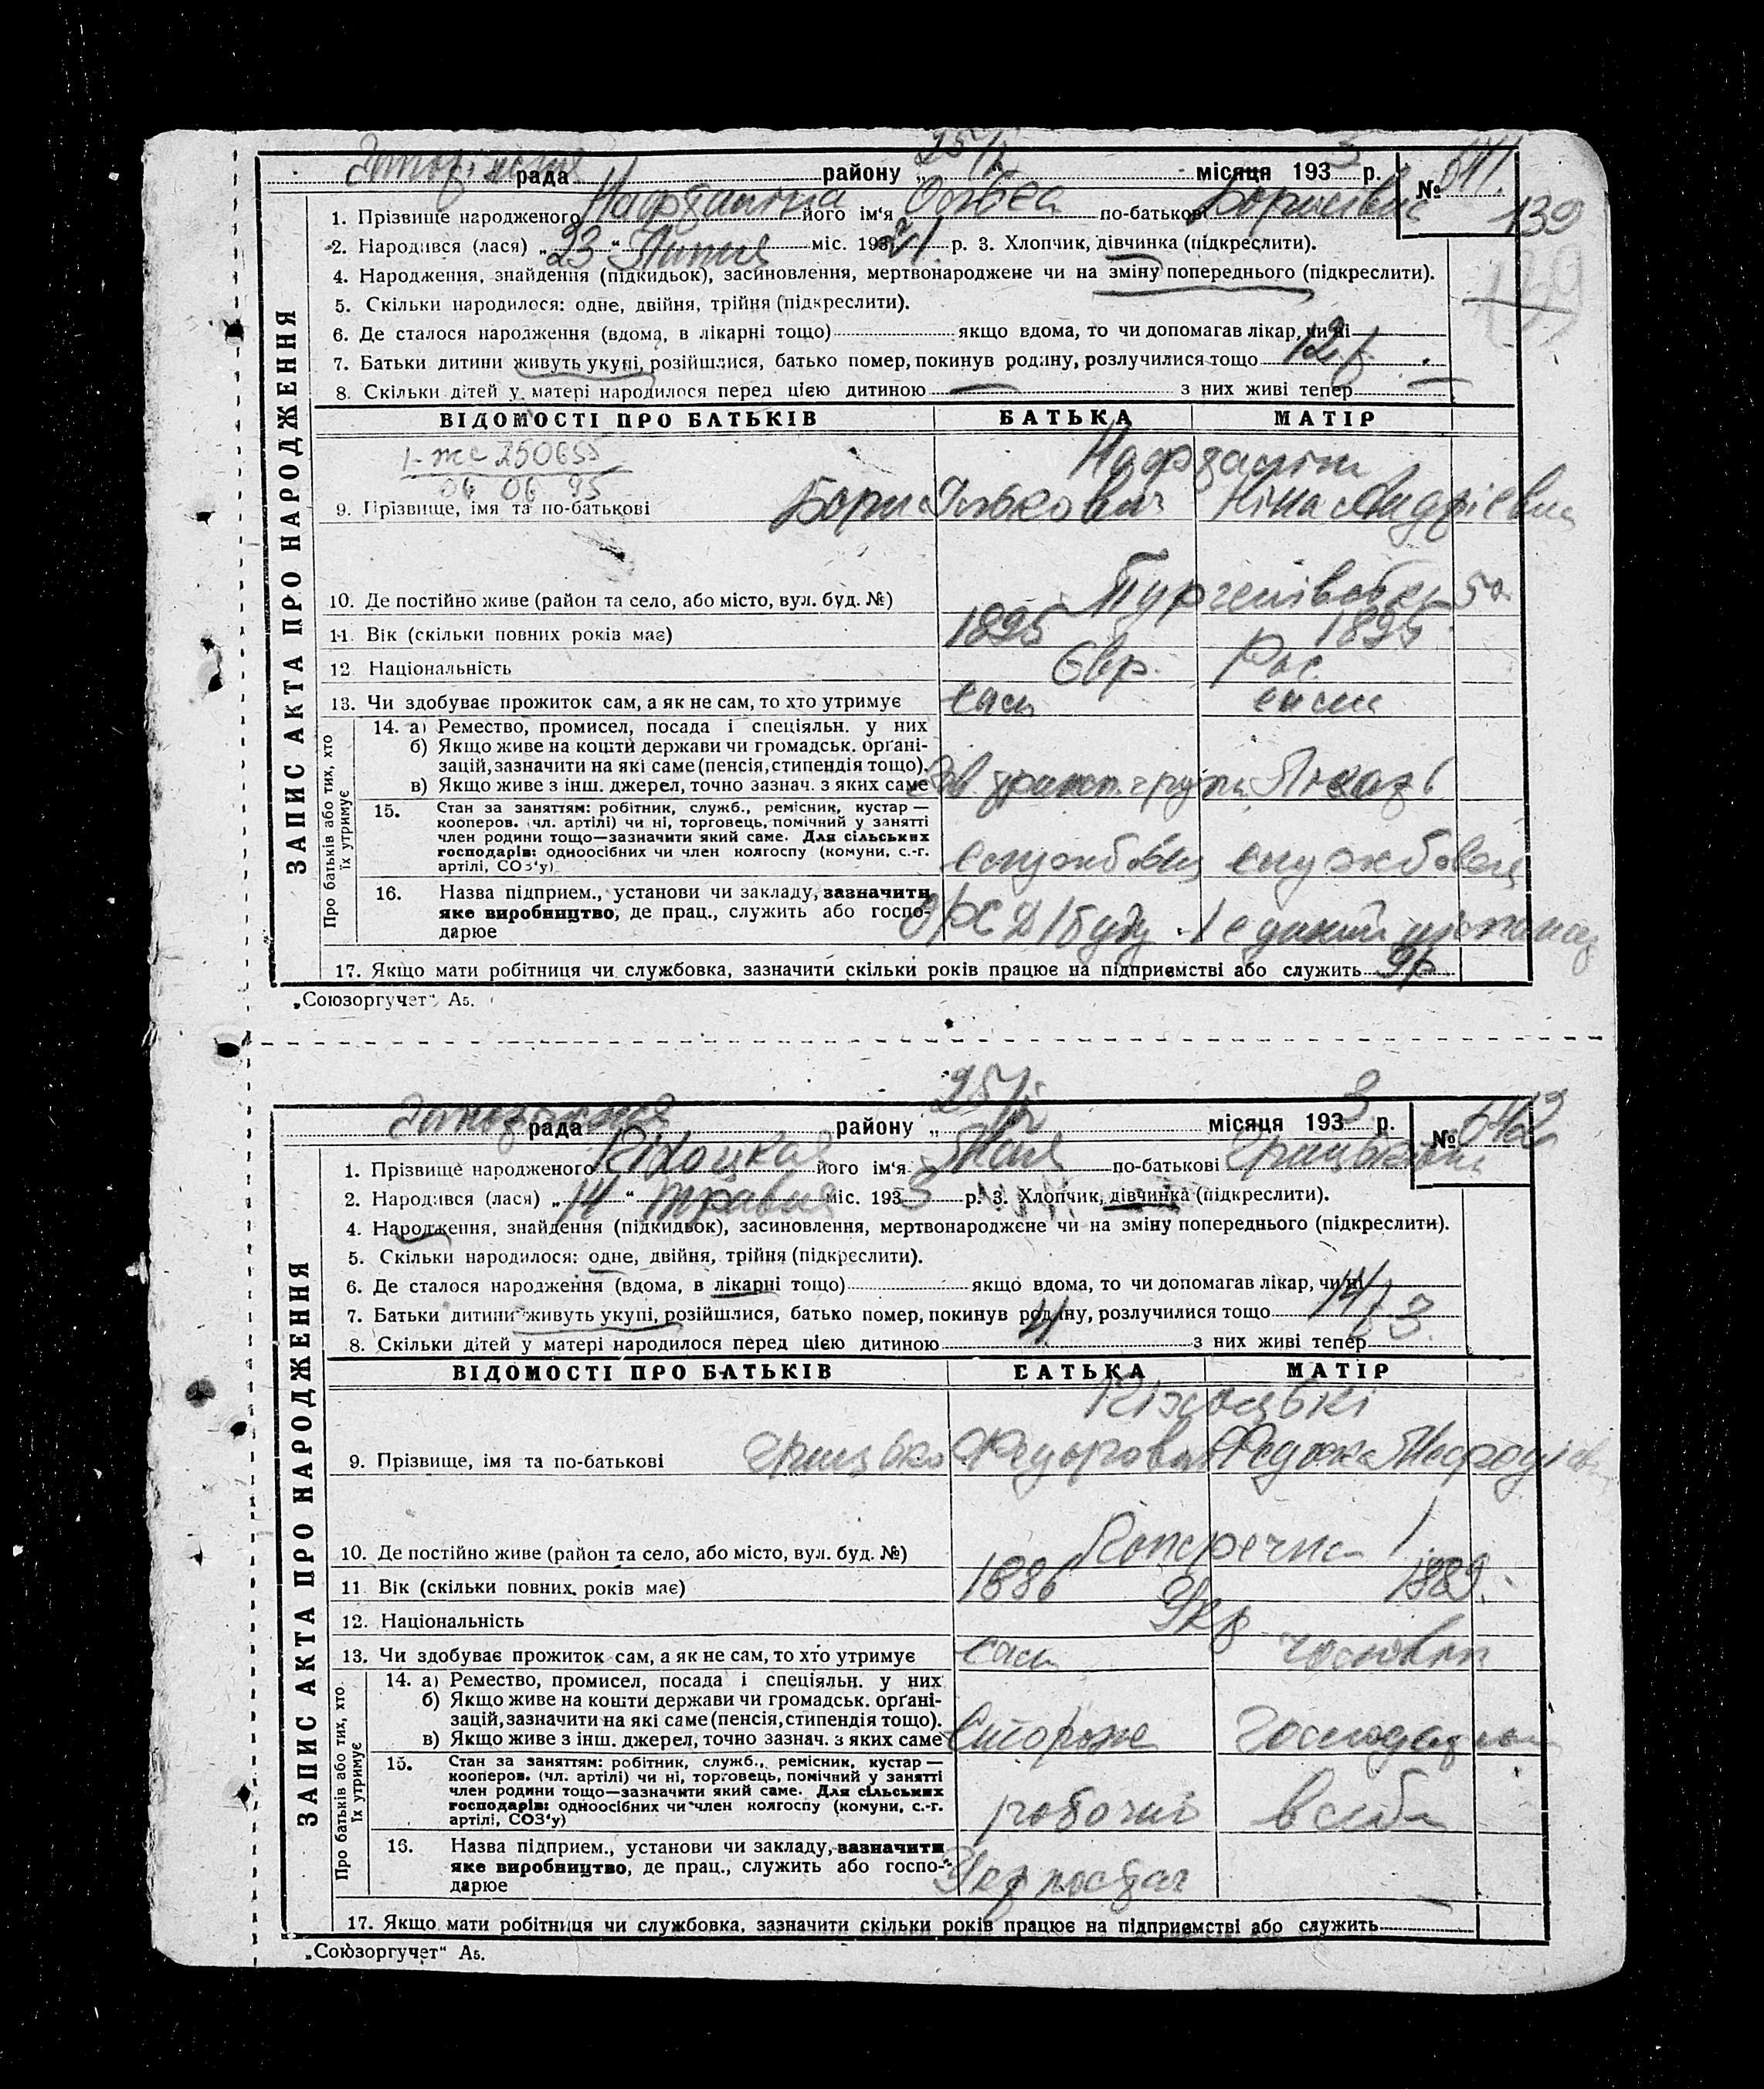 рада району „ 25/ місяця 1933 р. № 641.
139
1. Прізвище народженого його ім'я Ольга по-батькові Борисівна
2. Народився (лася) „ 23 “ Липня міс. 193 21 р. 3. Хлопчик, дівчинка (підкреслити).
4. Народження, знайдення (підкидьок), засиновлення, мертвонароджене чи на зміну попереднього (підкреслити).
5. Скільки народилося: одне, двійня, трійня (підкреслити).
6. Де сталося народження (вдома, в лікарні тощо) якщо вдома, то чи допомагав лікар, чи ні
7. Батьки дитини живуть укупі, розійшлися, батько помер, покинув родину, розлучилися тощо 12 р.
8. Скільки дітей у матері народилося перед цією дитиною — з них живі тепер —
ЗАПИС АКТА ПРО НАРОДЖЕННЯ
ВІДОМОСТІ ПРО БАТЬКІВ БАТЬКА МАТІР
250655
06 06 95
9. Прізвище, імя та по-батькові Борис Ількович Ніна Андріевна
10. Де постійно живе (район та село, або місто, вул. буд. №) 50.
11. Вік (скільки повних років має) 1895 1895
12 Національність Євр. Рос.
13. Чи здобуває прожиток сам, а як не сам, то хто утримує сам сама
Про батьків або тих, хто їх утримує
14. а) Ремество, промисел, посада і спеціяльн. у них
б) Якщо живе на кошти держави чи громадськ. орґані-
зацій, зазначити на які саме (пенсія, стипендія тощо).
в) Якщо живе з інш. джерел, точно зазнач. з яких саме Зав. групи
15. Стан за заняттям: робітник, служб., ремісник, кустар —
кооперов. (чл. артілі) чи ні, торговець, помічний у занятті
член родини тощо—зазначити який саме. Для сільських
господарів: одноосібних чи член колгоспу (комуни, с.-г.
артілі, СОЗ'у) службовец службовец
16. Назва підприєм., установи чи закладу, зазначити
яке виробництво, де прац., служить або госпо-
дарюе
17. Якщо мати робітниця чи службовка, зазначити скільки років працює на підприємстві або служить 9 р.
„Союзоргучет“ А5.
рада району „ 25/ місяця 1933 р. № 642
1. Прізвище народженого його ім'я по-батькові
2. Народився (лася) „ 14 “ травня міс. 1933 р. 3. Хлопчик, дівчинка (підкреслити).
4. Народження, знайдення (підкидьок), засиновлення, мертвонароджене чи на зміну попереднього (підкреслити).
5. Скільки народилося: одне, двійня, трійня (підкреслити).
6. Де сталося народження (вдома, в лікарні тощо) якщо вдома, то чи допомагав лікар, чи ні
7. Батьки дитини живуть укупі, розійшлися, батько помер, покинув родину, розлучилися тощо 14 р.
8. Скільки дітей у матері народилося перед цією дитиною 4 з них живі тепер 3.
ЗАПИС АКТА ПРО НАРОДЖЕННЯ
ВІДОМОСТІ ПРО БАТЬКІВ БАТЬКА МАТІР
9. Прізвище, імя та по-батькові Грицько Федорович
10. Де постійно живе (район та село, або місто, вул. буд. №) Поперечна 1
11 Вік (скільки повних років має) 1886 1889.
12. Національність Укр
13. Чи здобуває прожиток сам, а як не сам, то хто утримує сам чоловік
Про батьків або тих, хто їх утримує
14. а) Ремество, промисел, посада і спеціяльн. у них
б) Якщо живе на кошти держави чи громадськ. орґані-
зацій, зазначити на які саме (пенсія, стипендія тощо).
в) Якщо живе з інш. джерел, точно зазнач. з яких саме Сторож
15. Стан за заняттям: робітник, служб., ремісник, кустар —
кооперов. (чл. артілі) чи ні, торговець, помічний у занятті
член родини тощо—зазначити який саме. Для сільських
господарів: одноосібних чи член колгоспу (комуни, с.-г.
артілі, СОЗ'у) робочий
16. Назва підприєм., установи чи закладу, зазначити
яке виробництво, де прац., служить або госпо-
дарюе Укрпостач
17. Якщо мати робітниця чи службовка, зазначити скільки років працює на підприємстві або служить
„Союзоргучет“ А5.